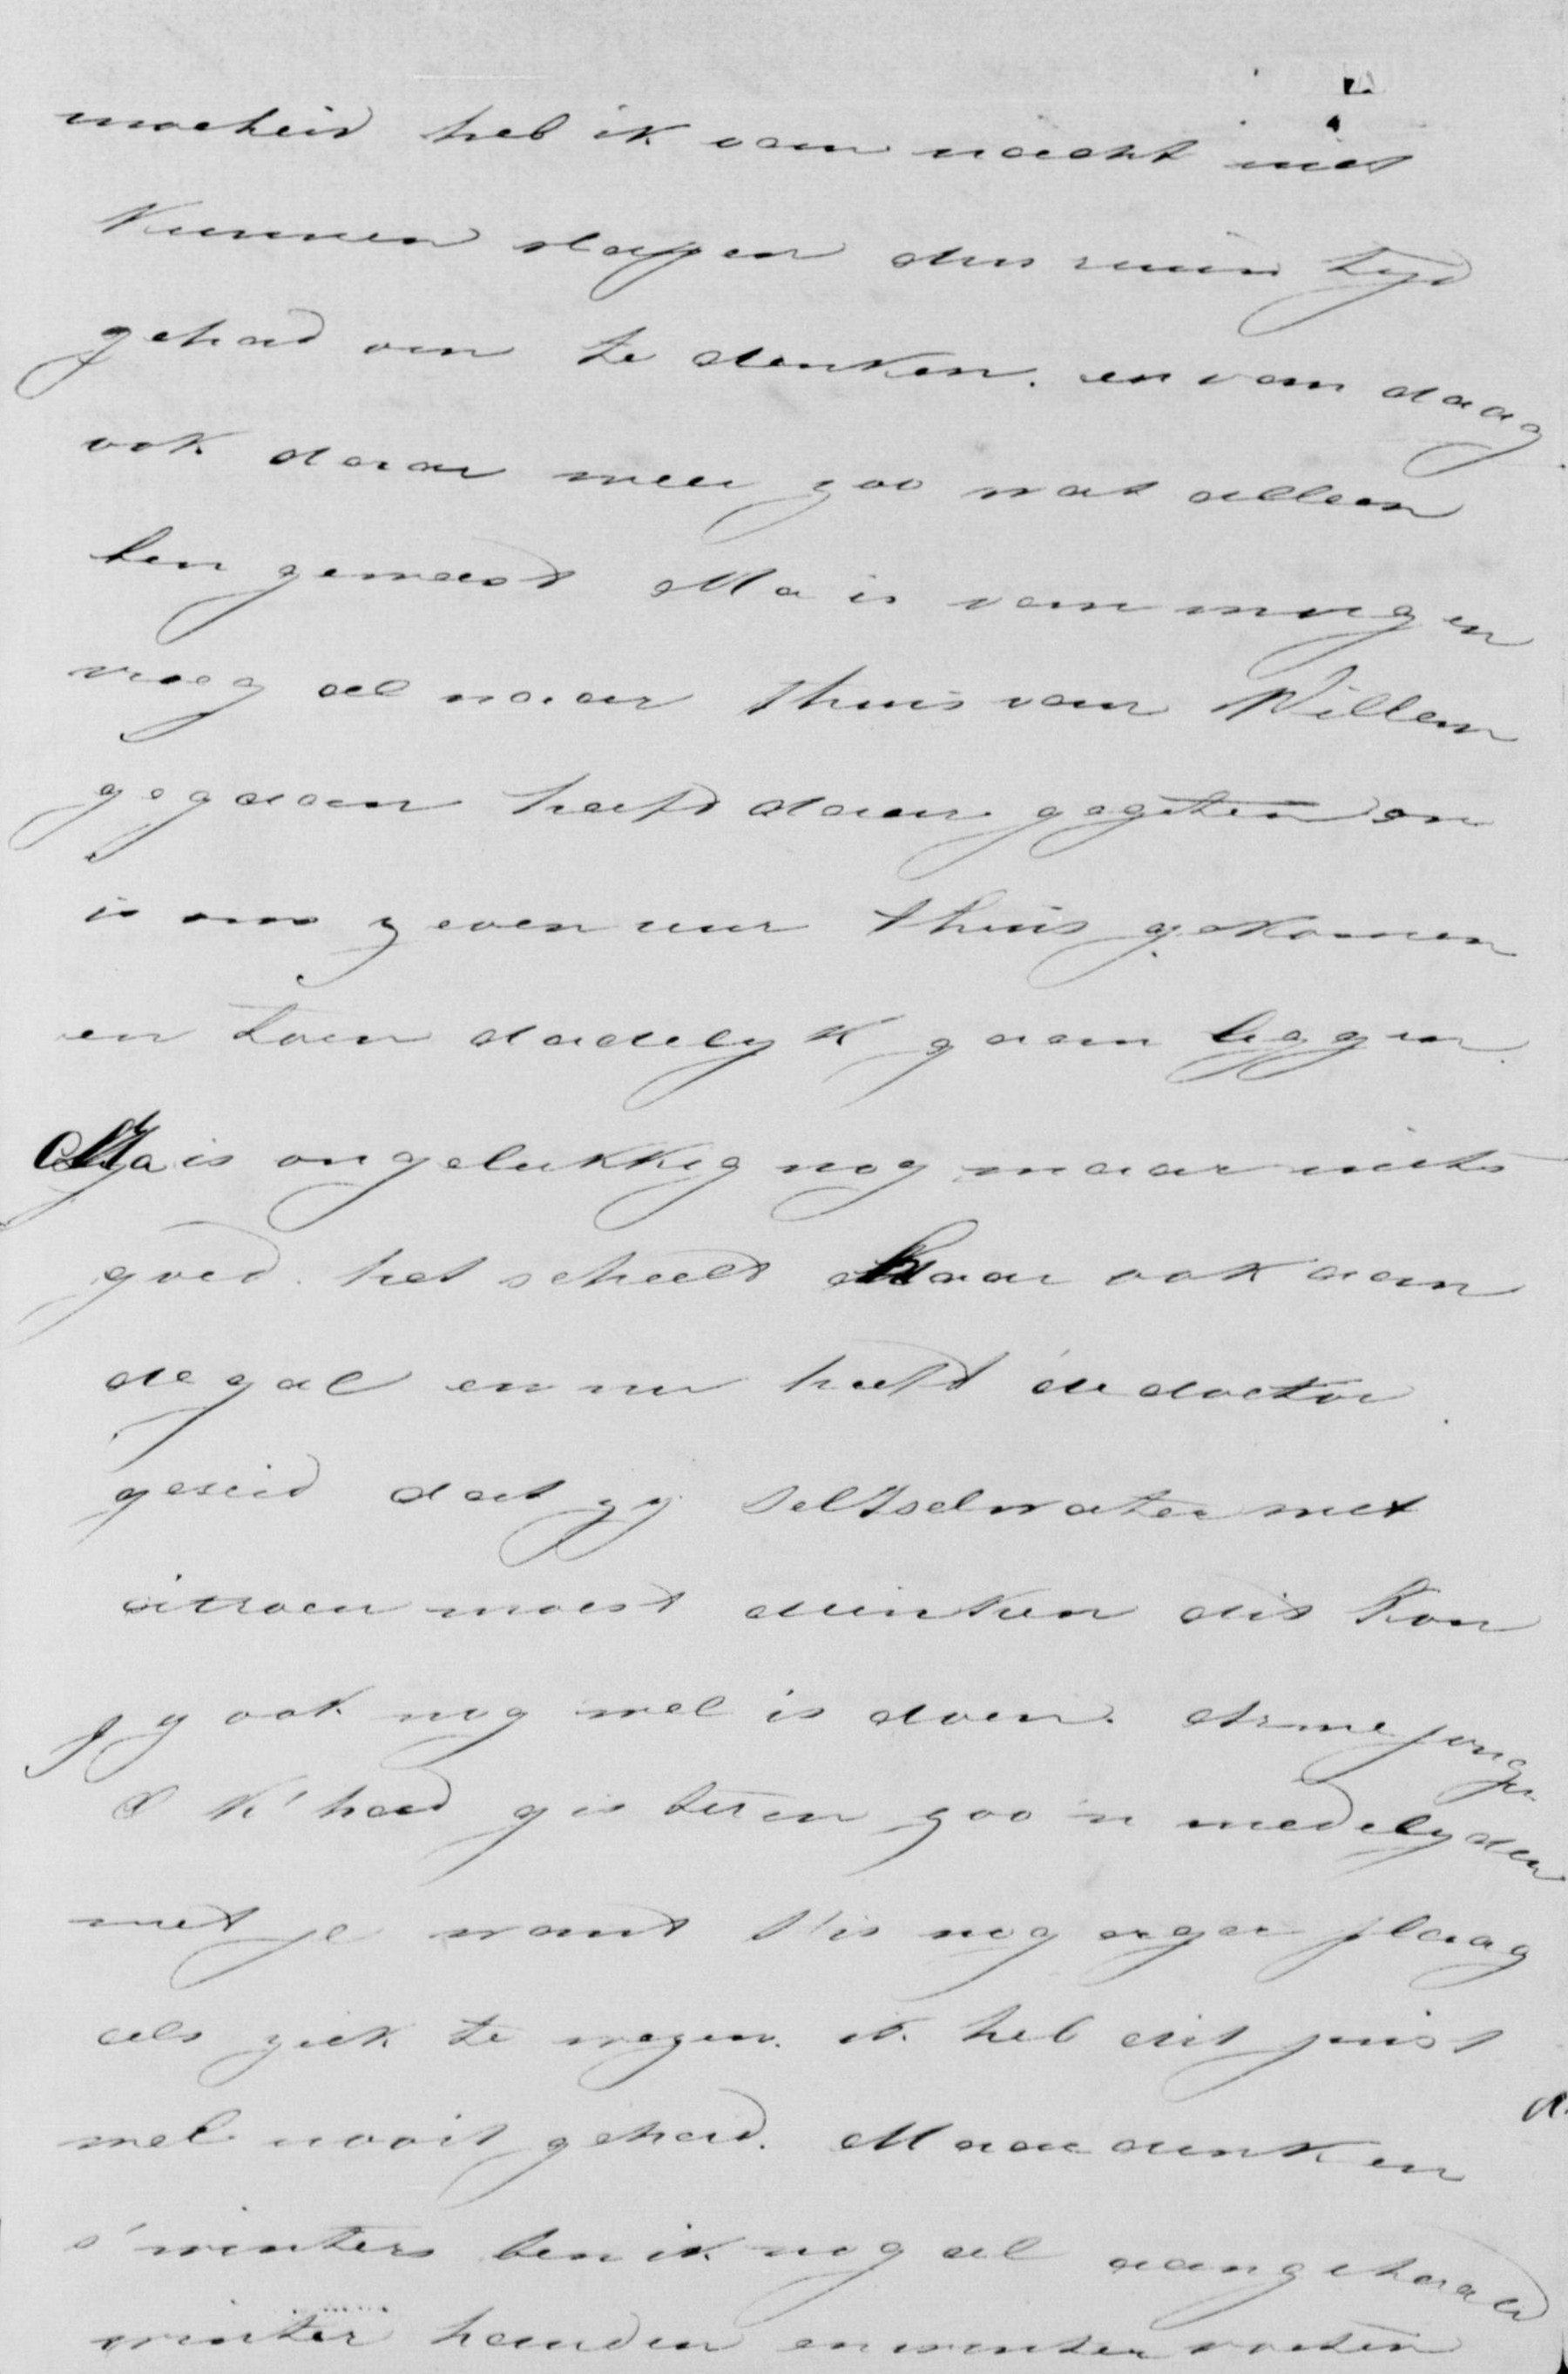 moeheid heb ik van nacht niet
kunnen slapen dus ruim tyd
gehad om te denken. en van daag
ook daar meer zoo wat alleen
ben geweest Ma is van morgen
vroeg al naar thuis van Willem
gegaan heeft daar gegeten en
is om zeven uur thuis gekomen
en toen dadelyk gaan leggen.
Ma is ongelukkig nog maar niets
goed. het scheelt haar ook aan
de gal en nu heeft de doctor
geseid dat zy Seltselwater met
citroen moest drinken dit kon
jy ook nog wel is doen. Arme jonge
Ik' had gisteren zoo'n medelyden
met je want t'is nog erger plaag
als ziek te wezen. ik heb dit juist
wel nooit gehad. Maar denken
s'winters ben ik nog al aangehaald
winter handen en winter voeten